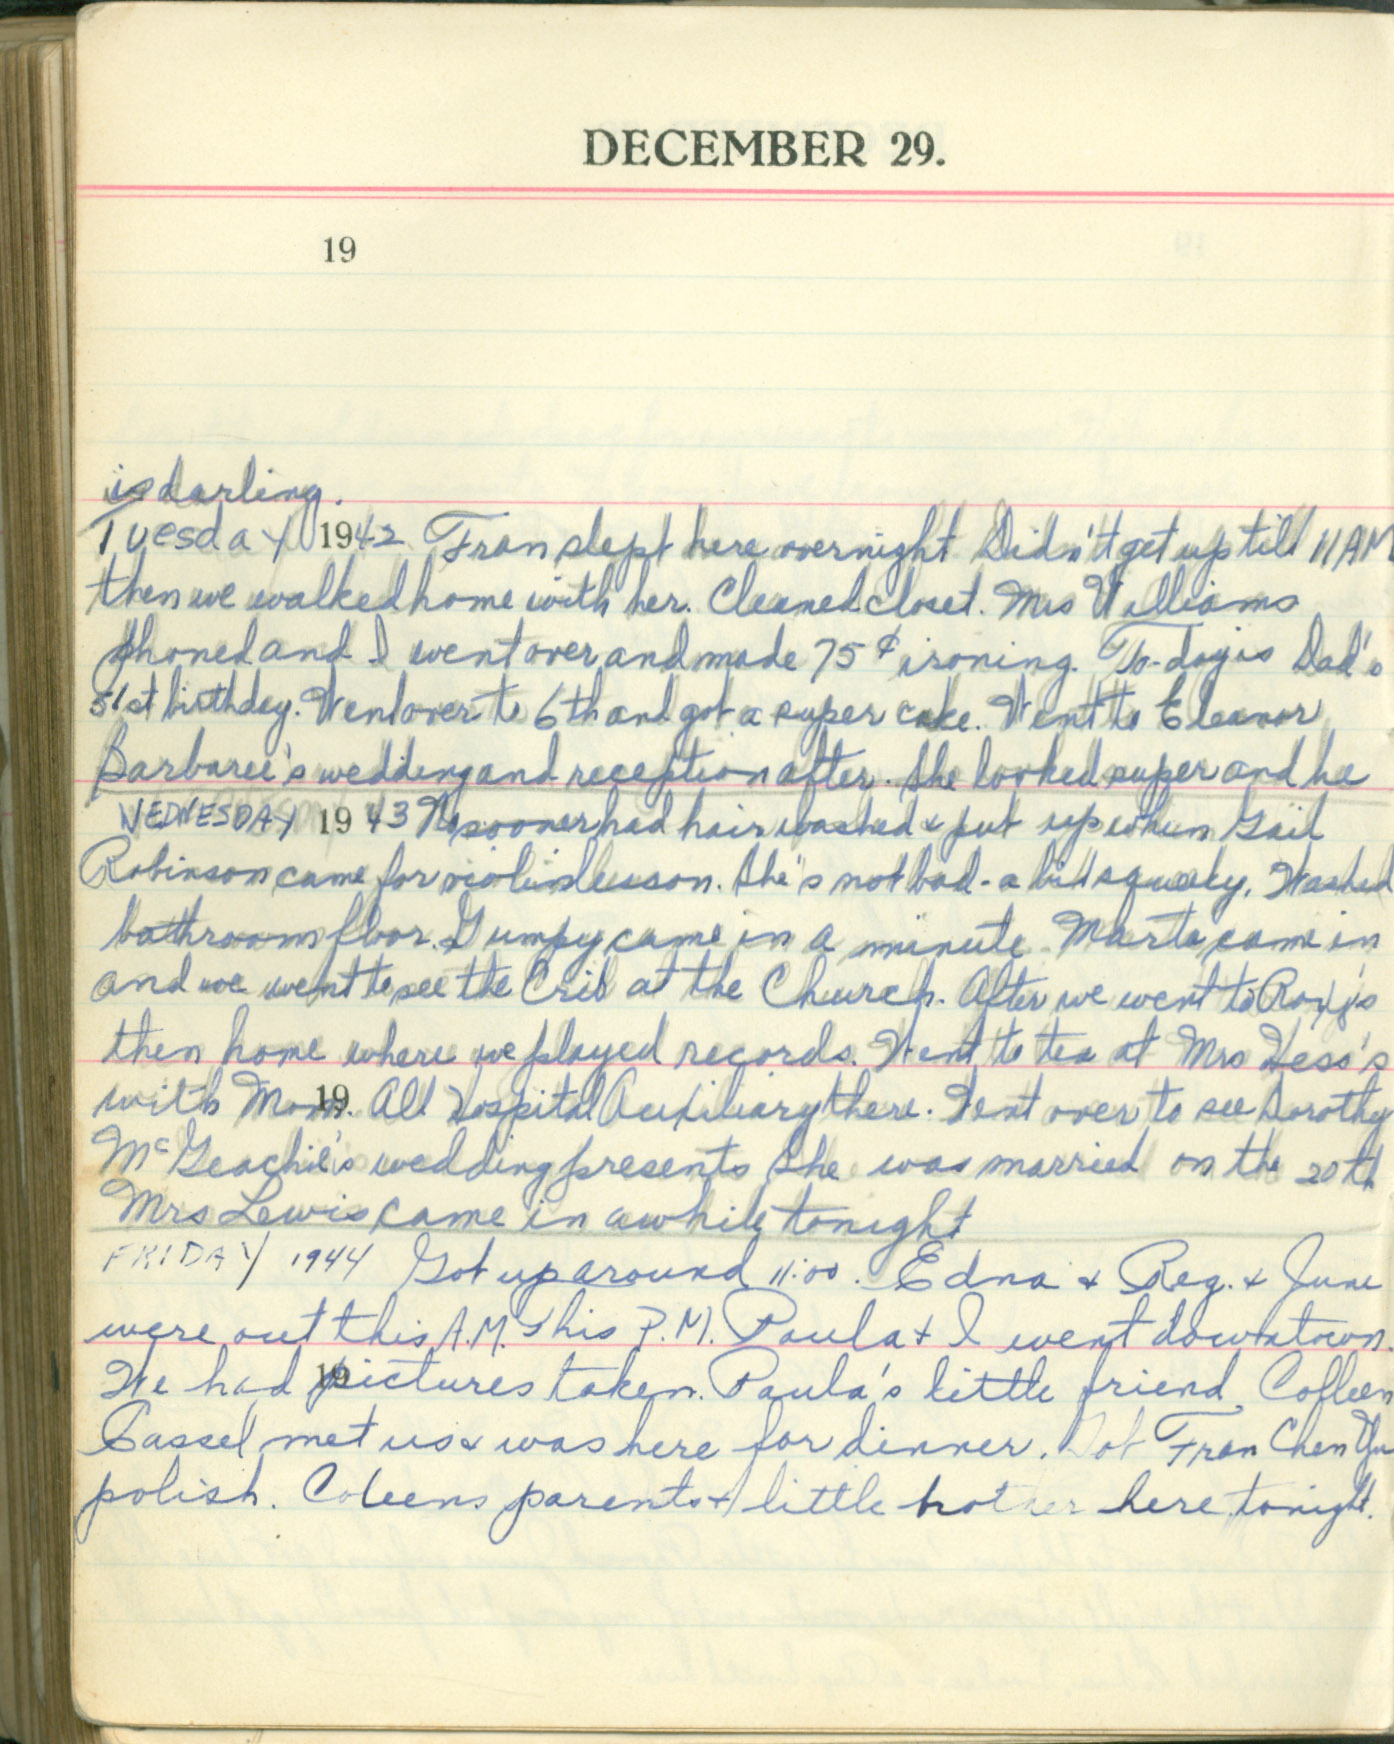 DECEMBER 29.
19
is darling.
Tuesday 1942 Fran slept here overnight Didn't get up till 11 AM
then we walked home with her. Cleaned closet. Mrs Williams
phoned and I went over and made 75¢ ironing. To-day is Dad's
51st birthday. Went over to 6th and got a super cake. Went to Eleanor
Barbaree's wedding and reception after. She looked super and he
WEDNESDAY 1943 No sooner had hair washed & put up when Gail
Robinson came for violin lesson. She's not bad - a bit squeaky. Washed
bathroom floor. Gumpy came in a minute. Marta came in
and we went to see the Crib at the Church. After we went to Roxy's
then home where we played records. Went to tea at Mrs Hess's
with Mom. 19 All Hospital Auxiliary there. Went over to see Dorothy
McGeachie's wedding presents She was married on the 20th
Mrs Lewis came in awhile tonight
FRIDAY 1944 Got up around 11:00. Edna & Reg. & June
were out this A.M. This P.M. Paula & I went downtown.
We had 19 pictures taken. Paula's little friend Colleen
Cassel met us & was here for dinner. Got Fran Chen Yu
polish. Coleens parents & little brother here tonight.